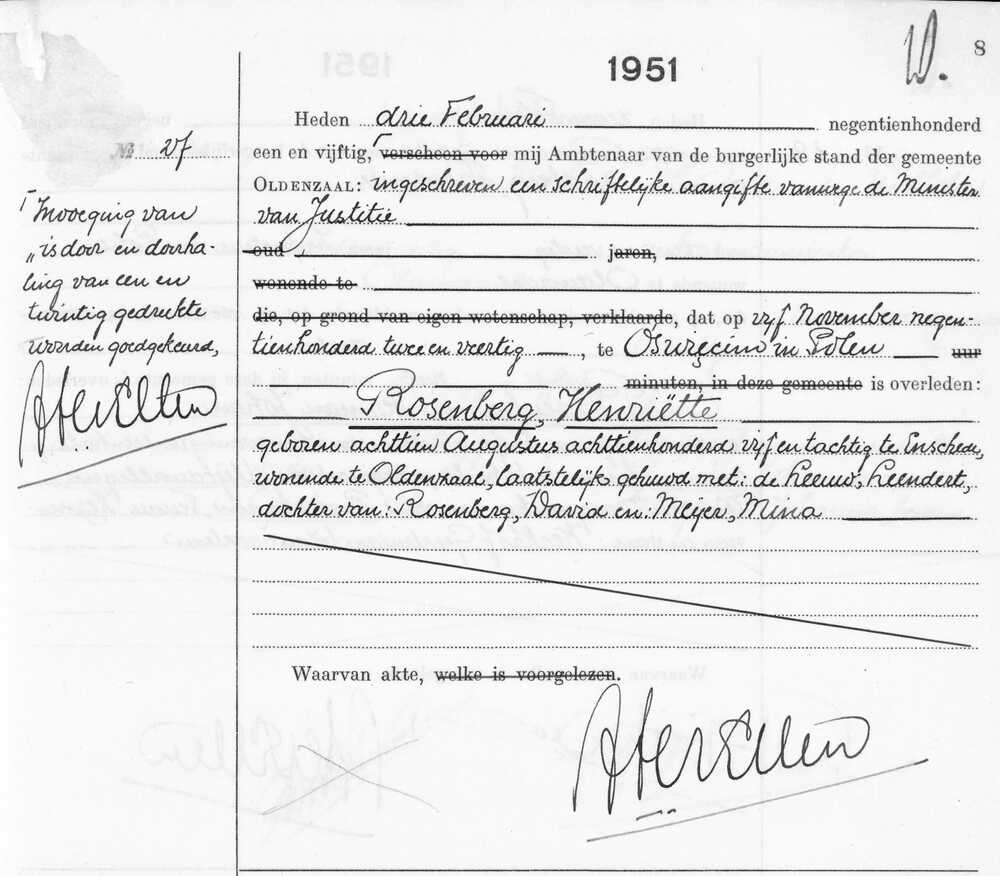 W. 8
1951
Heden drie Februari negentienhonderd
№ 27
een en vijftig, ⎡ verscheen voor mij Ambtenaar van de burgerlijke stand der gemeente
OLDENZAAL: ingeschreven een schriftelijke aangifte vanwege de Minister
van Justitie
oud , jaren,
wonende te
die, op grond van eigen wetenschap, verklaarde, dat op vijf November negen-
tienhonderd twee en veertig , te Oswiecim in Polen uur
minuten, in deze gemeente is overleden:
Rosenberg, Henriëtte
geboren achttien Augustus achttienhonderd vijf en tachtig te Enschede,
wonende te Oldenzaal, laatstelijk gehuwd met: de Leeuw, Leendert,
dochter van: Rosenberg, David en: Meijer, Mina
Waarvan akte, welke is voorgelezen.
⎡ Invoeging van
„is door en doorha-
ling van een en
twintig gedrukte
woorden goedgekeurd,